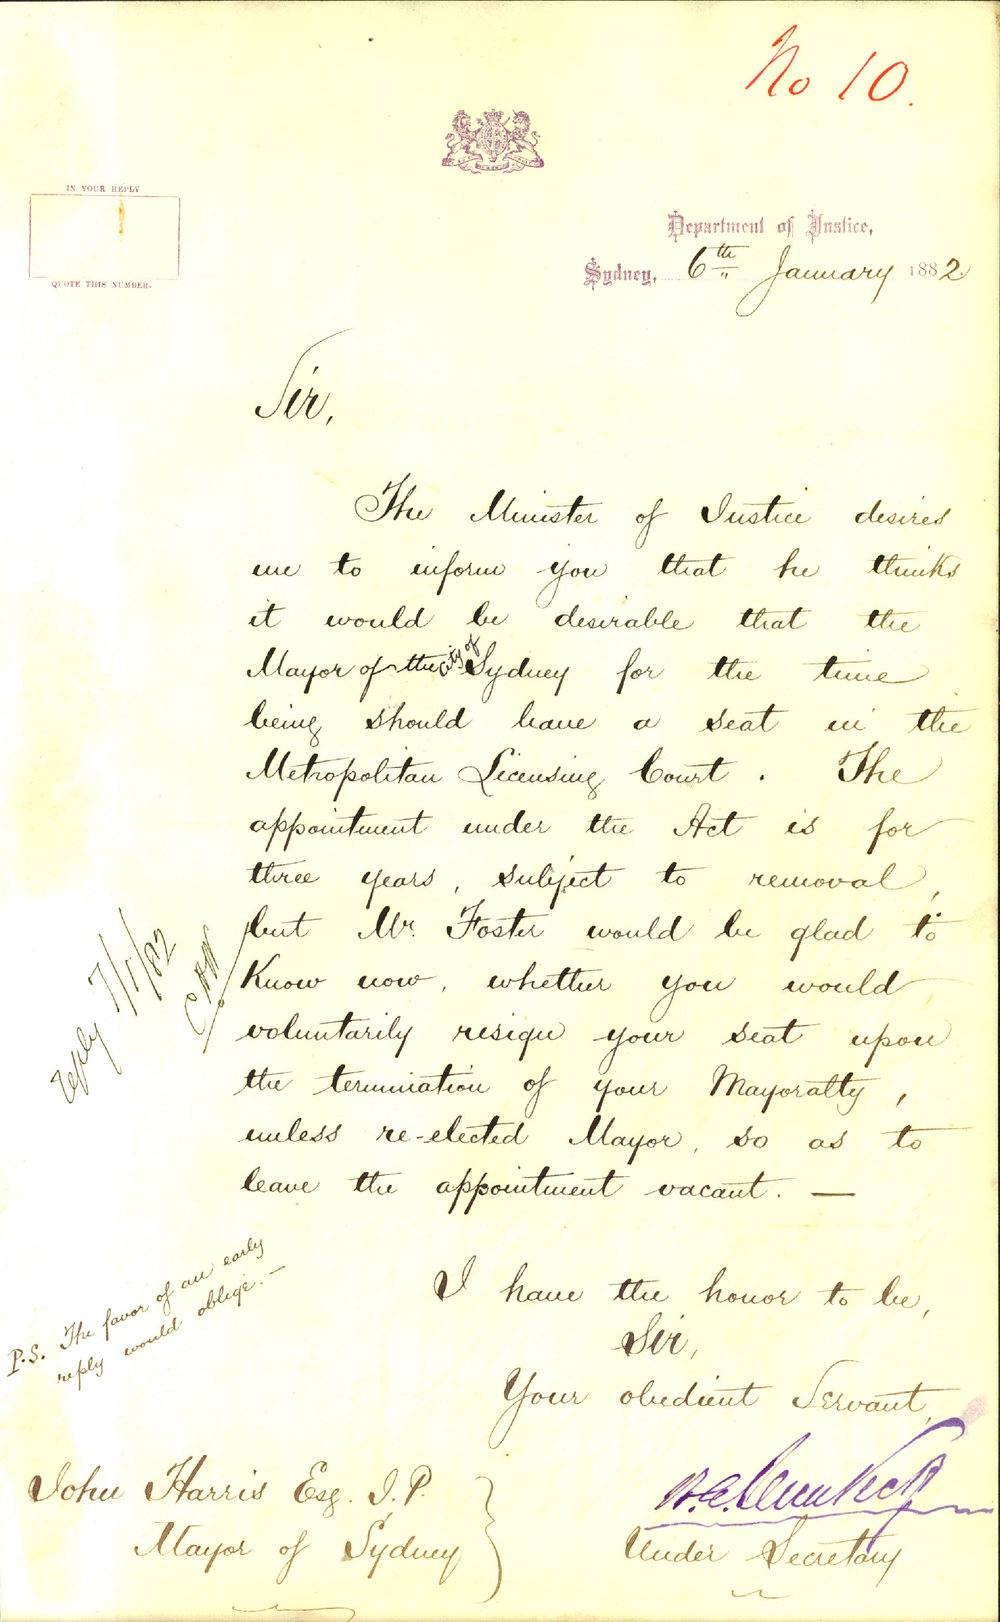 No 10.
IN YOUR REPLY
QUOTE THIS NUMBER.
Department of Justice,
Sydney, 6th January 1882
Sir,
The Minister of Justice desires
me to inform you that he thinks
it would be desirable that the
Mayor of the City of Sydney for the time
being should have a seat in the
Metropolitan Licensing Court. The
appointment under the Act is for
three years, subject to removal,
but Mr. Foster would be glad to
know now, whether you would
voluntarily resign your seat upon
the termination of your Mayoralty,
unless re-elected Mayor, so as to
leave the appointment vacant. —
reply 7/1/82
P.S. The favor of an early
reply would oblige. —
I have the honor to be,
Sir,
Your obedient Servant,
Under Secretary
John Harris Esq. J.P.
Mayor of Sydney